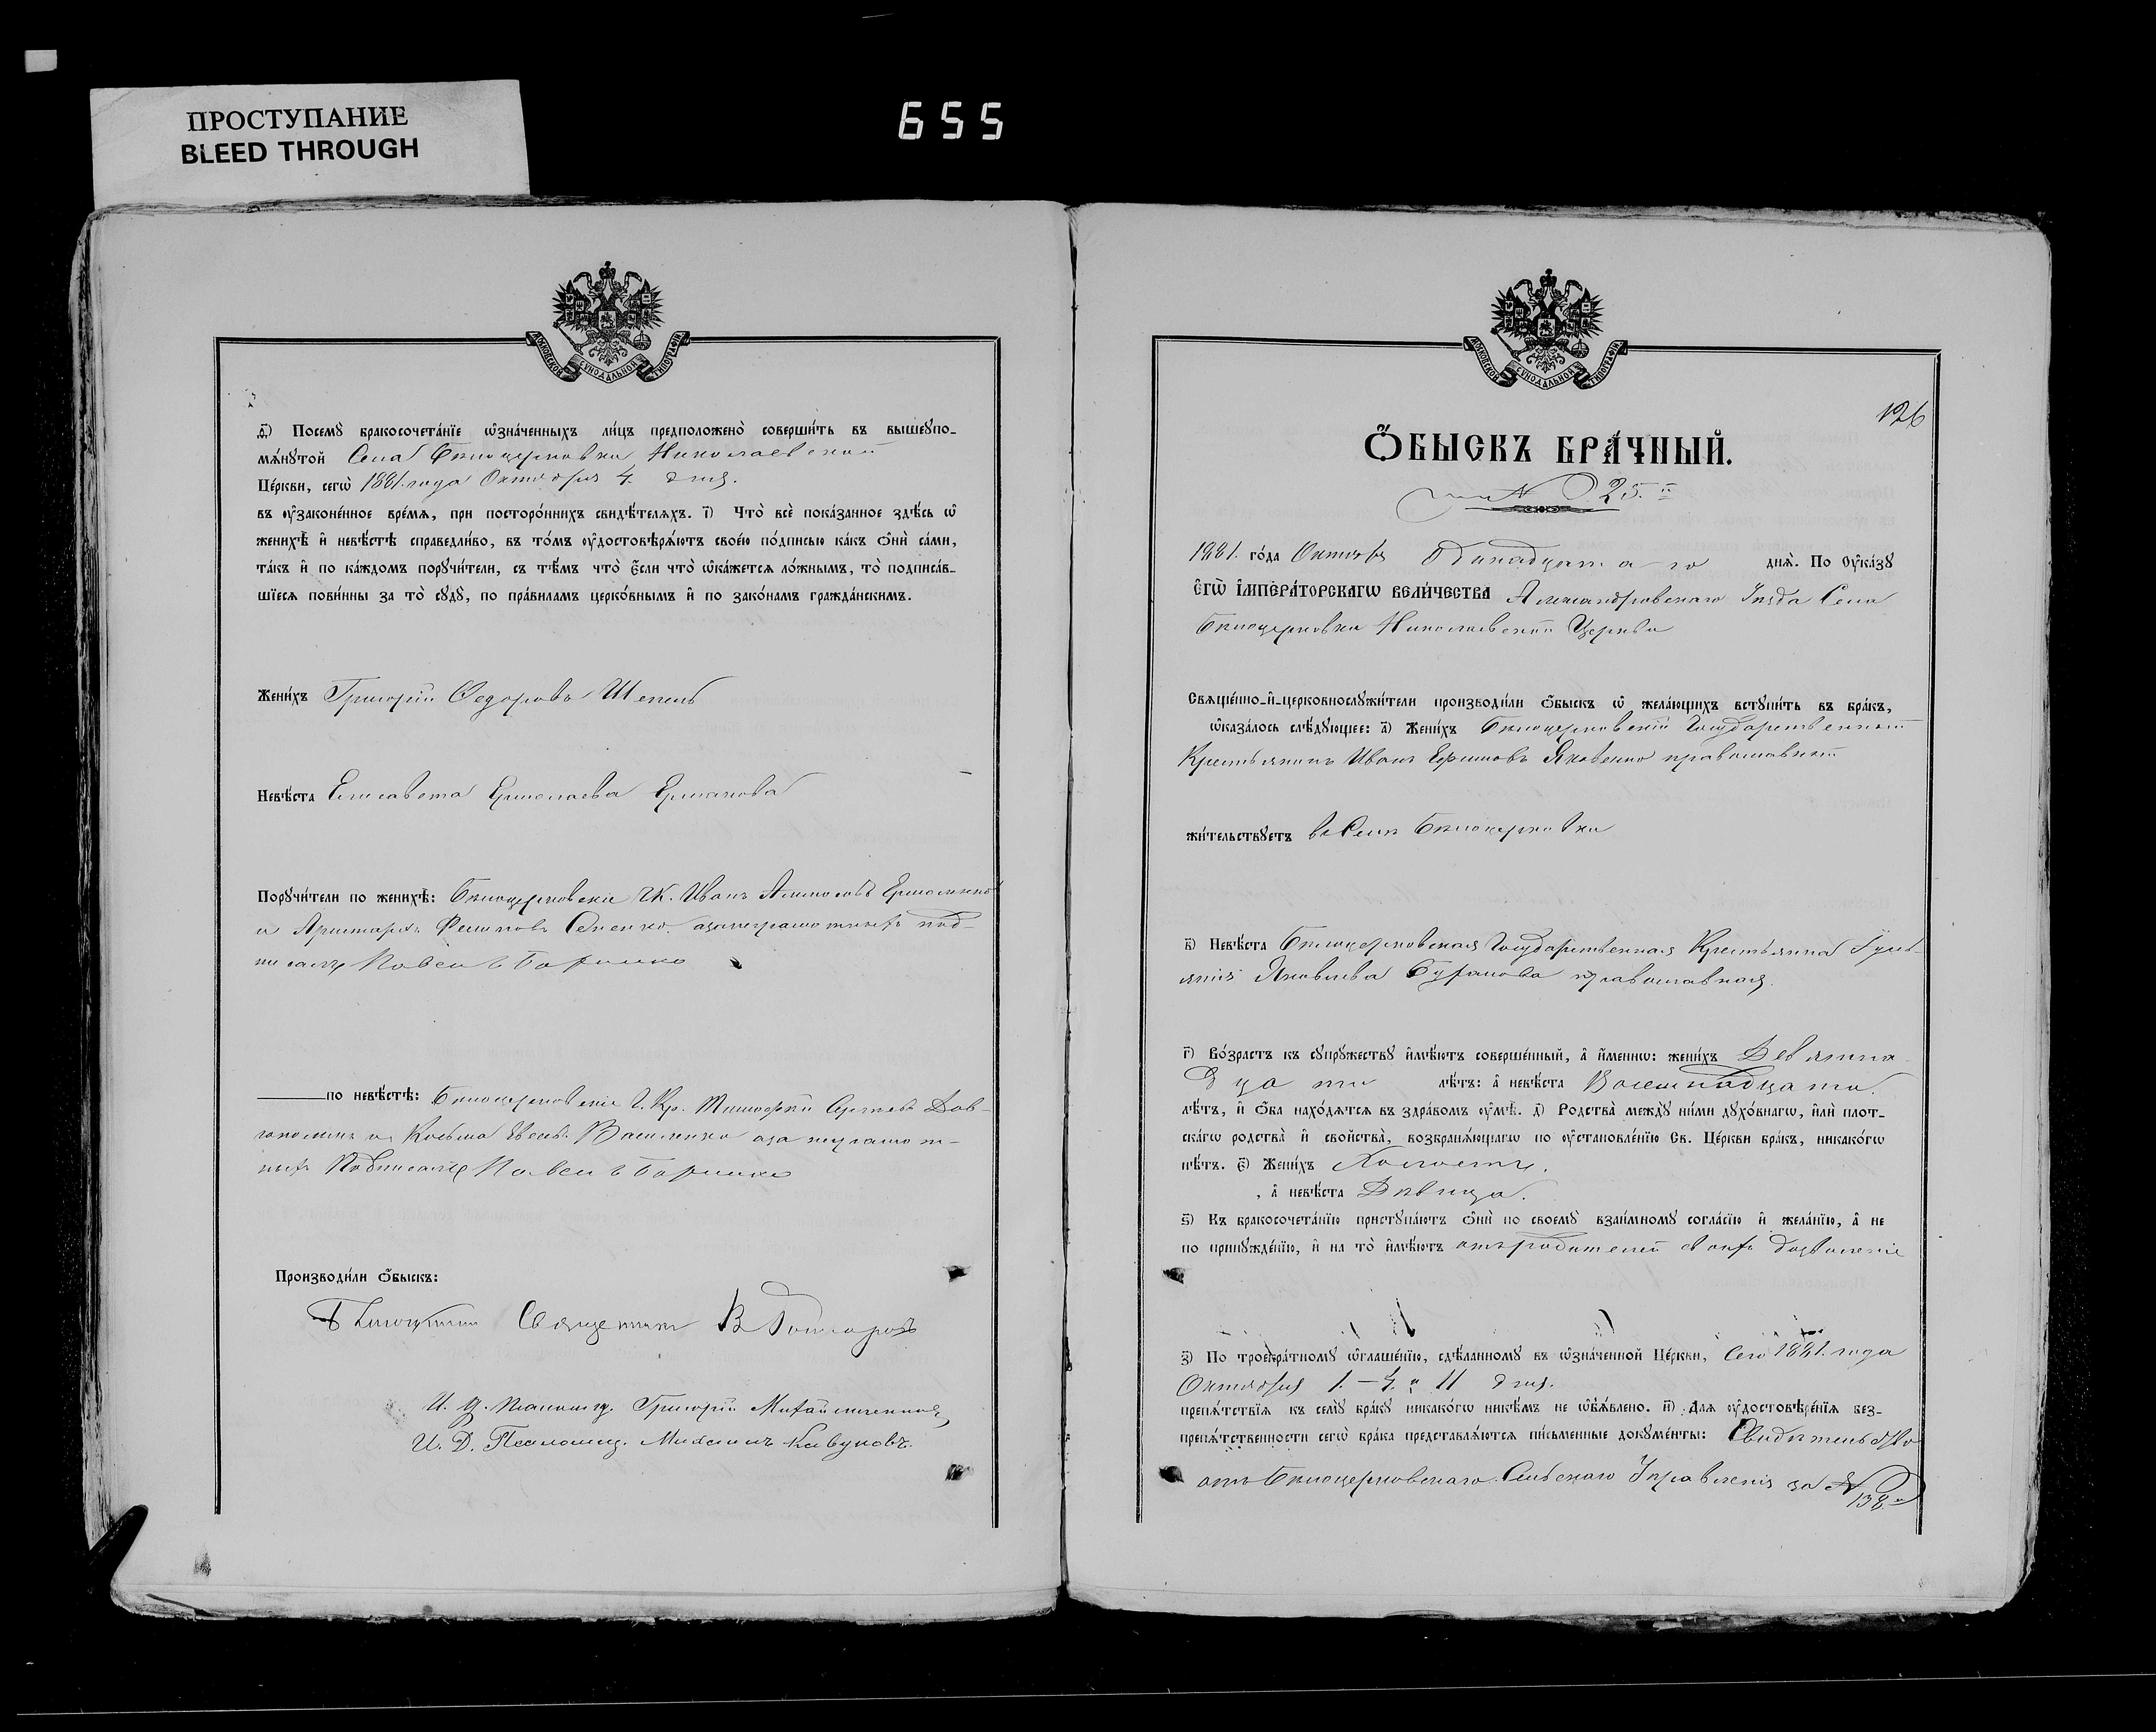 ПРОСТУПАНИЕ
BLEED THROUGH
655
МОСКОВСКОЙ СѴНОДАЛЬНОЙ ТИПОГРАФІИ
ѳ҃) Посемꙋ бракосочета́нїе ѡ҆зна́ченныхъ ли́цъ предположено̀ соверши́ть въ вышеꙋпо-
мѧ́нꙋтой Села Бѣлоцерковки Николаевской
Це́ркви, сегѡ̀ 1881. года Октября 4. дня.
въ ᲂу҆зако́ненное вре́мѧ, при посторо́ннихъ свидѣ́телѧхъ. і҃) Что̀ всѐ пока́занное здѣ́сь ѡ҆
женихѣ̀ и҆ невѣ́стѣ справедли́во, въ то́мъ ᲂу҆достовѣрѧ́ютъ свое́ю по́дписью ка́къ ѻ҆нѝ са́ми,
та́къ и҆ по ка́ждомъ порꙋчи́тели, съ тѣ́мъ что̀ є҆́сли что̀ ѡ҆ка́жетсѧ ло́жнымъ, то̀ подписа́в-
шїесѧ пови́нны за то̀ сꙋдꙋ̀, по пра́виламъ церко́внымъ и҆ по зако́намъ гражда́нскимъ.
Жени́хъ Григорій Ѳедоровъ Шепель
Невѣ́ста Елисавета Ермолаева Ермакова
Порꙋчи́тели по женихѣ̀: Бѣлоцерковскіе Г.К. Иванъ Ермоленко
и Аристархъ Филиповъ Сененко. азанеграмотныхъ под-
писалъ Павелъ Боримко
по невѣ́стѣ: Бѣлоцерковскіе Г. Кр. Тимофѣй Сергѣевъ Дов-
и Косьма Евсев. Василенко аза неграмот-
ныхъ Подписалъ Павелъ Боримко
Производи́ли ѻ҆́быскъ:
Священникъ В Гончаровъ
И. д. Псаломщ. Григорій
И. Д. Псаломщ. Михаилъ Кавуновъ.
МОСКОВСКОЙ СѴНОДАЛЬНОЙ ТИПОГРАФІИ
126
Ѻ҆́БЫСКЪ БРА́ЧНЫЙ.
N 25.й
1881. го́да Октября Одинадцата-го днѧ̀. По ᲂу҆ка́зꙋ
Є҆ГѠ̀ І҆МПЕРА́ТОРСКАГѠ ВЕЛИ́ЧЕСТВА Александровскаго Уѣзда Села
Бѣлоцерковки Николаевской Церкви
Сващ҃е́нно-и҆-церковнослꙋжи́тели производи́ли ѻ҆́быскъ ѡ҆ жела́ющихъ встꙋпи́ть въ бра́къ,
ѡ҆каза́лось слѣ́дꙋющее: а҃) Жени́хъ Бѣлоцерковскій Государственный
Крестьянинъ Иванъ Ефимовъ Яковенко православный
жи́тельствꙋетъ въ Селѣ Бѣлоцерковки
в҃) Невѣ́ста Бѣлоцерковская Государственная Крестьянка Іуль-
янія Яковлева Буракова православная.
г҃) Во́зрастъ къ сꙋпрꙋ́жествꙋ и҆мѣ́ютъ соверше́нный, а҆ и҆́меннѡ: жени́хъ Девятна-
дцати лѣ́тъ: а҆ невѣ́ста Восемнадцати
лѣ́тъ, и҆ ѻ҆́ба нахо́дѧтсѧ въ здра́вомъ ᲂу҆мѣ̀. д҃) Родства̀ междꙋ̀ ни́ми дꙋхо́внагѡ, и҆лѝ плот-
ска́гѡ родства̀ и҆ свойства̀, возбранѧ́ющагѡ по ᲂу҆становле́нїю Св. Це́ркви бра́къ, никако́гѡ
нѣ́тъ. є҃) Жени́хъ Холостъ.
, а҆ невѣ́ста Дѣвица.
ѕ҃) Къ бракосочета́нїю пристꙋпа́ютъ ѻ҆нѝ по своемꙋ̀ взаи́мномꙋ согла́сїю и҆ жела́нїю, а҆ не
по принꙋжде́нїю, и҆ на то̀ и҆мѣ́ютъ отъ родителей своихъ дозволеніе
з҃) По троекра́тномꙋ ѡ҆глаше́нїю, сдѣ́ланномꙋ въ ѡ҆зна́ченной Це́ркви, сего 1881. года
Октября 1. – 4. и 11 дня.
препѧ́тствїѧ къ семꙋ̀ бра́кꙋ никако́гѡ никѣ́мъ не ѡ҆б̾ѧ́влено. и҃) Длѧ ᲂу҆достовѣре́нїѧ без-
препѧ́тственности сегѡ̀ бра́ка представлѧ́ютсѧ пи́сьменные докꙋме́нты: Свидѣтельство
отъ Бѣлоцерковскаго Сельскаго Управленія за N
138.